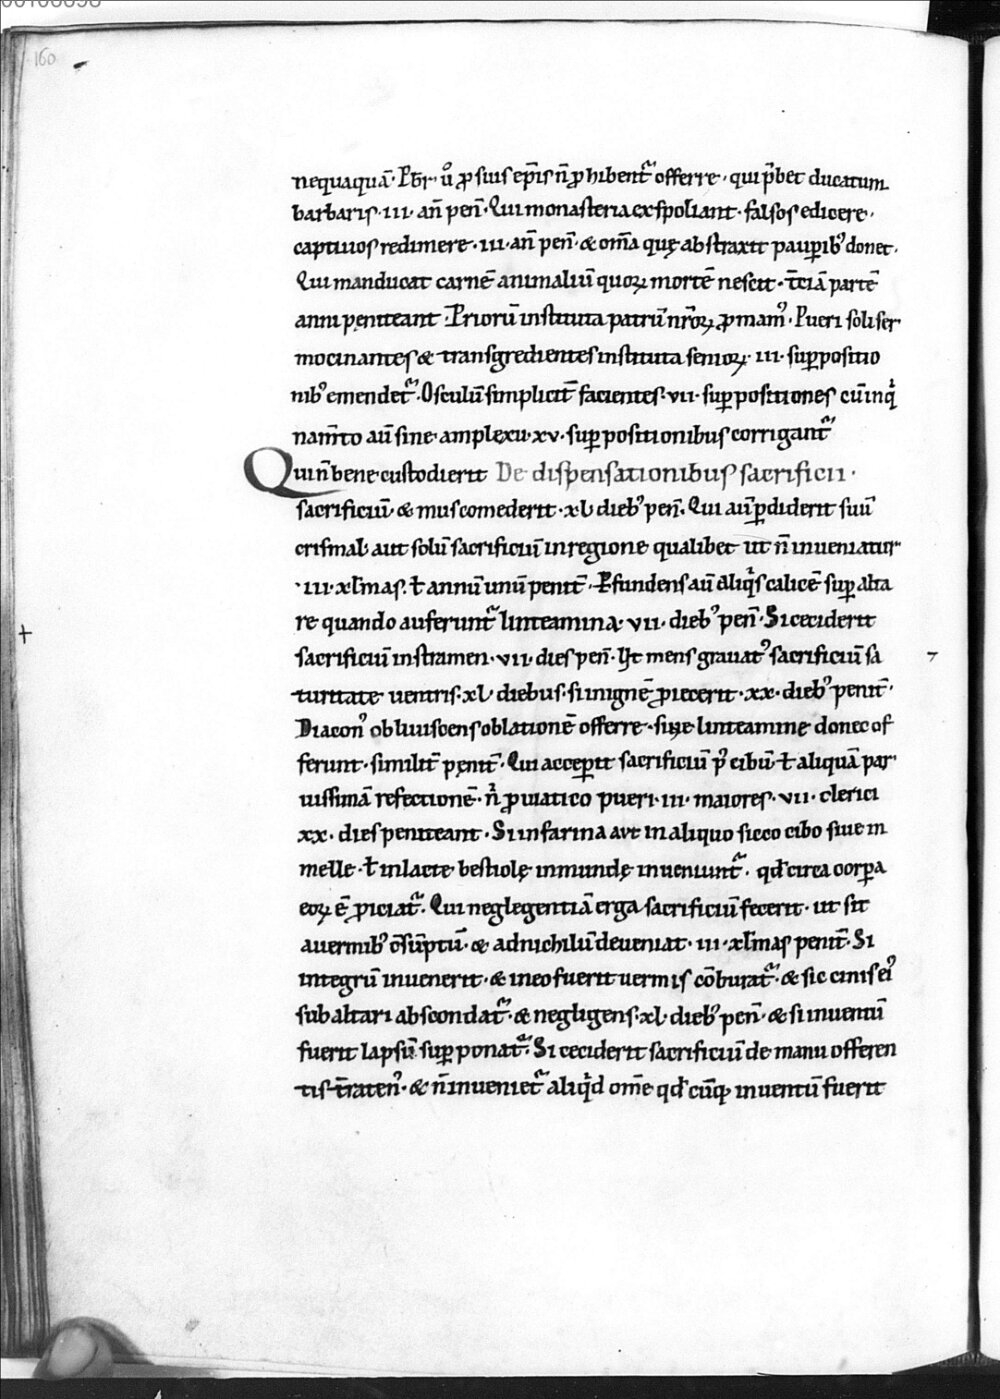 160
nequaquā· Pbr̄· ů ꝓ suis ep̄is n̄ ꝓhibent᷑ offerre · qui p̄bet ducatum
barbaris · iii · an̄ pen̄ · Qui monasteria exspoliant · falsos edicere ·
captiuos redimere · iii · an̄ pen̄ · & om̄a quę abstraxit pauꝑibꝰ donet ·
Qui manducat carnē animaliū quoꝝ mortē nescit · t̄ciā partē
anni pęniteant · Priorū instituta patrū nr̄oꝝ ꝓmamꝰ · Pueri soli ser
mocinantes & transgredientes instituta senioꝝ · iii · suꝑpositio
nibꝰ emendet᷑ · Osculū simplicit̄ facientes · vii · suꝑpositiones cū inq̇
nam̄to aū sine amplexu · xv · suꝑpositionibus corrigant᷑
Qui n̄ bene custodierit De dispensationibus sacrificii ·
sacrificiū & mus comederit · xl diebꝰ pen̄ · Qui aū ꝑdiderit suū
crismal aut solū sacrificiū in regione qualibet ut n̄ inueniatur
· iii · xl̄mas · ł annū unū penit̄ · Ꝑfundens aū aliq̇s calicē suꝑ alta
re quando auferunt᷑ linteamina · vii · diebꝰ pen̄ · Si ceciderit
sacrificiū in stramen · vii · dies pen̄ · Ut mens grauatꝰ sacrificiū sa
turitate uentris · xl diebus · si in ignē ꝓiecerit · xx · diebꝰ penit̄ ·
Diaconꝰ obliuiscens oblationē offerre · siue linteamine donec of
ferunt · similit̄ pęnit̄ · Qui acceperit sacrificiū p̄ cibū ł aliquā par
uissimā refectionē · n̄ ꝓ uiatico pueri · iii · maiores · vii · clerici
xx · dies peniteant · Si in farina aut in aliquo sicco cibo siue in
melle · ł in lacte bestiolę inmundę inueniunt᷑ · qd̄ circa corꝑa
eoꝝ ē ꝓiciat᷑ · Qui neglegentiā erga sacrificiū fecerit · ut sit
a uermibꝰ c̄sūptū · & ad nichilū deueniat · iii · xl̄mas penit̄ · Si
integrū inuenerit · & in eo fuerit uermis cōburat᷑ · & sic cinis eiꝰ
sub altari abscondat᷑ · & negligens · xl · diebꝰ pen̄ · & si inuentū
fuerit lapsū suꝑponat᷑ · Si ceciderit sacrificiū de manu offeren
tis t̄ratenꝰ · & n̄ inueniet᷑ aliq̇d om̄e qd̄ cūq; inuentū fuerit